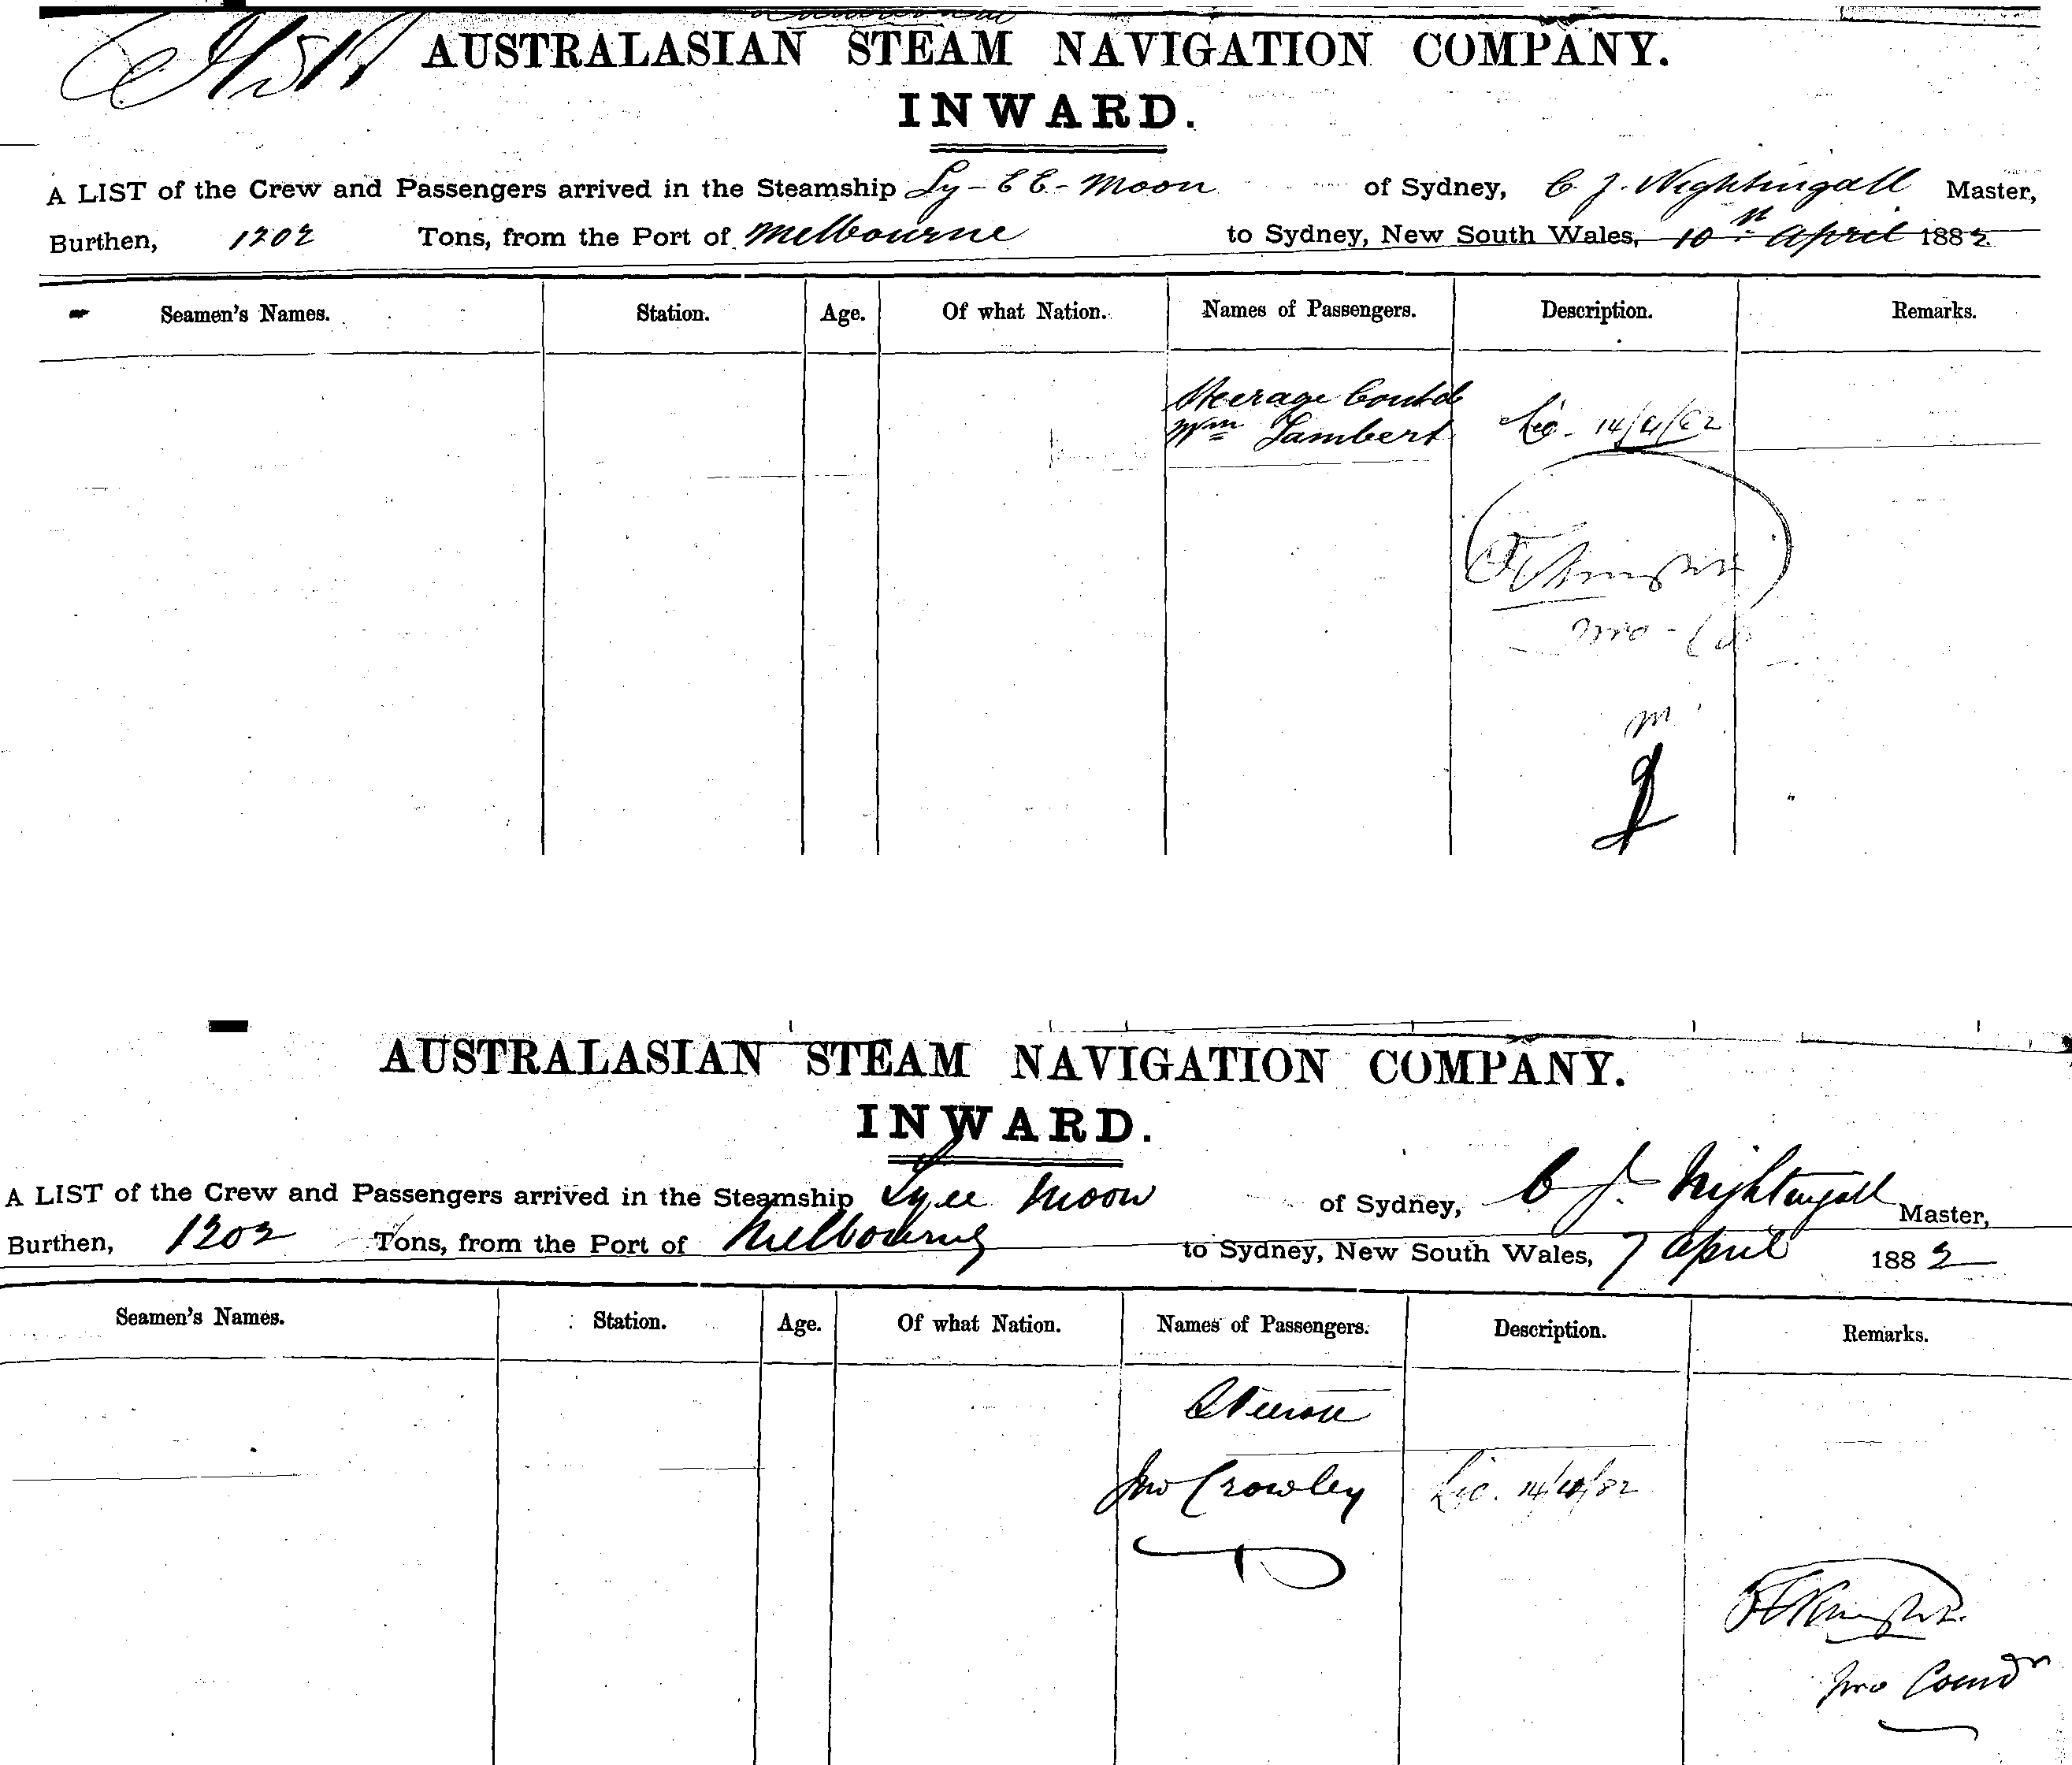 AUSTRALASIAN STEAM NAVIGATION COMPANY.
INWARD.
A LIST of the Crew and Passengers arrived in the Steamship Ly-EE-Moon of Sydney, C. J. Nightingall Master,
Burthen, 1202 Tons, from the Port of Melbourne to Sydney, New South Wales, 10th April 1882
Seamen's Names. Station. Age. Of what Nation. Names of Passengers. Description. Remarks.
Steerage Contd
Wm Lambert Lic. 14/4/82
AUSTRALASIAN STEAM NAVIGATION COMPANY.
INWARD.
A LIST of the Crew and Passengers arrived in the Steamship Lyee Moon of Sydney, C J. Nightingall Master,
Burthen, 1202 Tons, from the Port of Melbourne to Sydney, New South Wales, 7 April 1882
Seamen's Names. Station. Age. Of what Nation. Names of Passengers. Description. Remarks.
Jno Crowley Lic. 14/4/82